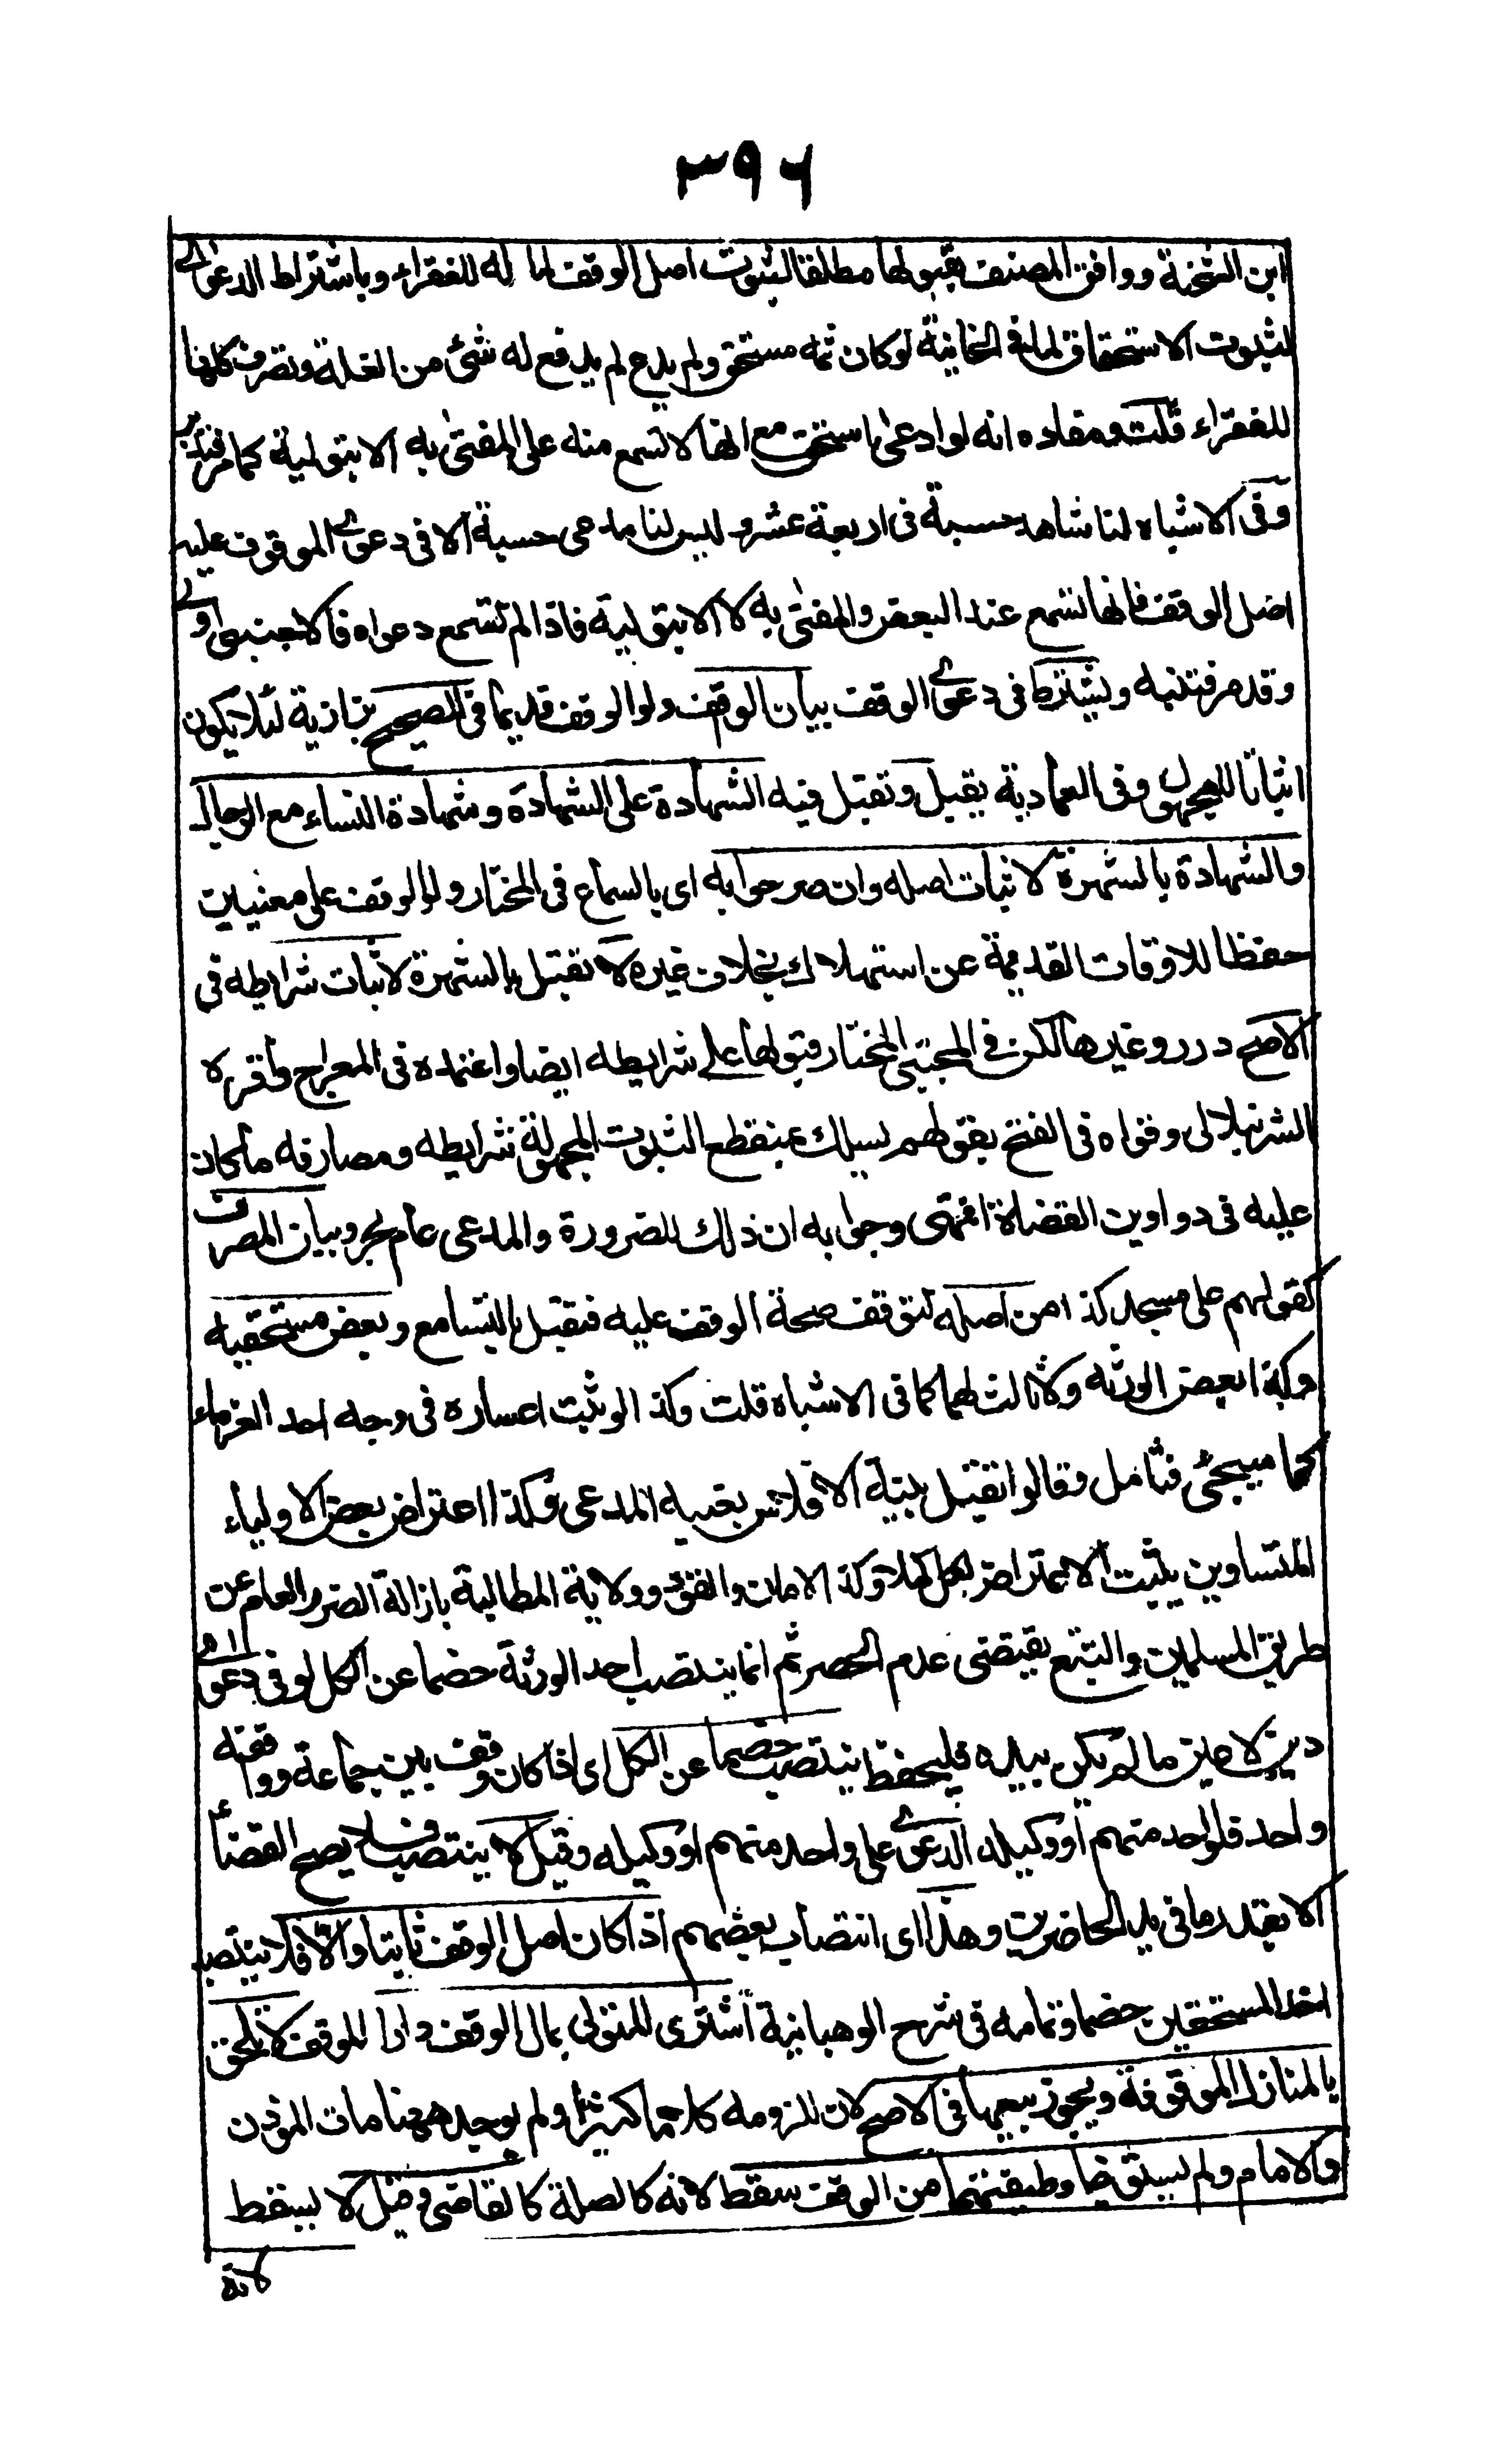 ٣٩٦
ابن الشحنة ووافق المصنف بقبولها مطلقا لثبوت اصل الوقف لما له للفقراء وباشتراط الدعوى
لثبوت الاستحقاق لما في الخانية لو كان ثمه مستحق ولم يدع لم يدفع له شئ من الغلة وتصرف كلها
للفقراء قلت ومفاده انه لو ادعى استحق مع انها لا تسمع منه على المفتى به الا بتولية كما مر فتدبر
وفي الاشباه لنا شاهد حسبة في اربعة عشر وليس لنا مدعى حسبة الا في دعوى الموقوف عليه
اصل الوقف فانها تسمع عند البعض والمفتى به لا الا بتولية فاذا لم تسمع دعواه فالاجنبى اولى
وقد مر فتنبه ويشترط في دعوى الوقف بيان الواقف ولو الوقف قديما في الصحيح بزازية لئلا يكون
اثباتا للمجهول وفى العمادية يقبل وتقبل فيه الشهادة على الشهادة وشهادة النساء مع الرجال
والشهادة بالشهرة لاثبات اصله وان صرحوا به اى بالسماع في المختار ولو الوقف على معنيين
حفظا للاوقات القديمة عن استهلاك بخلاف غيره لا تقبل بالشهرة لاثبات شرايطه في
الاصح درر وغيرها لكن في المجتبى المختار قبولها على شرايطه ايضا واعتمده في المعراج واقره
الشرنبلالى وقواه في الفتح بقولهم يسلك بمنقطع الثبوت المجهولة شرايطه ومصارفه ما كان
عليه في دواوين القضاة انتهى وجوابه ان ذلك للضرورة والمدعى عام بحر وبيان المصرف
كقولهم على مسجد كذا من اصله لتوقف صحة الوقف عليه فتقبل بالتسامع وبعض مستحقيه
وكذا بعض الورثه ولا ثالث لهما كما في الاشباه قلت وكذا لو ثبت اعساره في وجه احد الغرماء
كما سيجئ فتامل وقالوا تقبل بينة الافلاس بغيبه المدعى وكذا اعتراض بعض الاولياء
المتساوين يثبت الاعتراض لكل كملا وكذا الامان والقود وولاية المطالبة بازالة الضرر العام عن
طريق المسلمين والتتبع يقتضى عدم الحصر ثم انما ينتصب احد الورثة خصما عن الكل لو في دعوى
دين لا عين ما لم يكن بيده فليحفظ ينتصب خصما عن الكل اى اذا كان وقف بين جماعة وواقفه
واحد فلو احد منهم او وكيله الدعوى على واحد منهم او وكيله وقيل لا ينتصب فلا يصح القضاء
الا بقدر ما في يد الحاضرين وهذا اى انتصاب بعضهم اذا كان اصل الوقف ثابتا والا فلا ينتصب
احد المستحقين خصما وتمامه في شرح الوهبانية اشترى المتولى بمال الوقف دارا للوقف لا تلحق
بالمنازل الموقوفة ويجوز بيعها في الاصح لان للزومه كلاما كثيرا ولم يوجد ههنا مات المؤذن
والامام ولم يستوفيا وظيفتهما من الوقف سقط لانه كالصلة كالقاضى وقيل لا يسقط
لانه